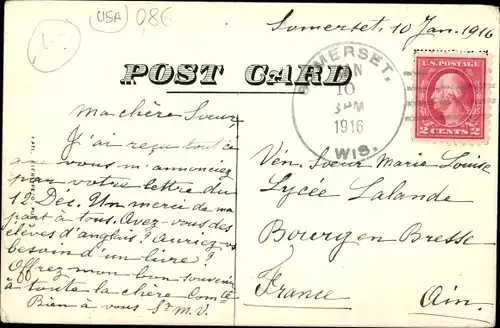 USA
086
Somerset, 10 Jan. 1916
POST CARD
SOMERSET,
JAN
10
3PM
1916
WIS.
U.S. POSTAGE
2 CENTS 2
Ma chère Sœur,
J'ai reçu tout ce
que vous m'annonciez
par votre lettre du
12 Dec. Un merci de ma
part à tous. Avez-vous des
élèves d'anglais? Auriez-vs
besoin d'un livre?
Offrez mon bon souvenir
à toute la chère Comté
Bien à vous Sr M. V.
Vén. Sœur Marie-Louise
Lycée Lalande
Bourg en Bresse
France Ain.